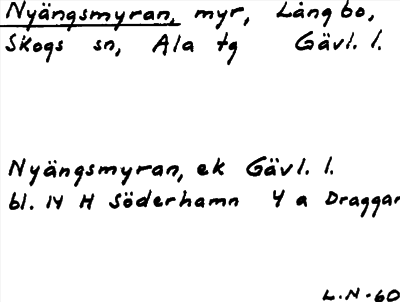 Nyängsmyran, myr, Långbo,
Skogs sn, Ala tg Gävl. l.
Nyängsmyran, ek Gävl. l.
bl. 14 H Söderhamn 4 a Draggan
L.N.60